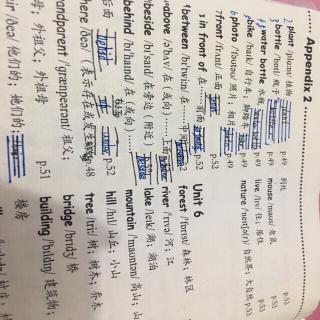 Appendix 2
plant /plɑːnt/ 植物
bottle /'bɒtl/ 瓶子
water bottle 水瓶 p.49
bike /baɪk/ 自行车; 脚踏车 p.49
photo /'fəʊtəʊ/ 照片; 相片 p.49
front /frʌnt/ 正面 p.52
in front of 在……前面 p.52
between /bɪ'twiːn/ 在……中间
above /ə'bʌv/ 在(或向)……上面
beside /bɪ'saɪd/ 在旁边(附近)
behind /bɪ'haɪnd/ 在(或向)……
后面 p.52
there /ðeə/ (表示存在或发生) p.48
grandparent /'grænpeərənt/ 祖父;
祖母; 外祖父; 外祖母 p.51
their /ðeə/ 他们的; 她们的;
mouse /maʊs/ 老鼠 p.53
live /lɪv/ 住; 居住 p.53
nature /'neɪtʃə(r)/ 自然界; 大自然 p.53
Unit 6
forest /'fɒrɪst/ 森林; 林区
river /'rɪvə/ 河; 江
lake /leɪk/ 湖; 湖泊
mountain /'maʊntən/ 高山; 山
hill /hɪl/ 山丘; 小山
tree /triː/ 树; 树木; 乔木
bridge /brɪdʒ/ 桥
building /'bɪldɪŋ/ 建筑物;
楼房